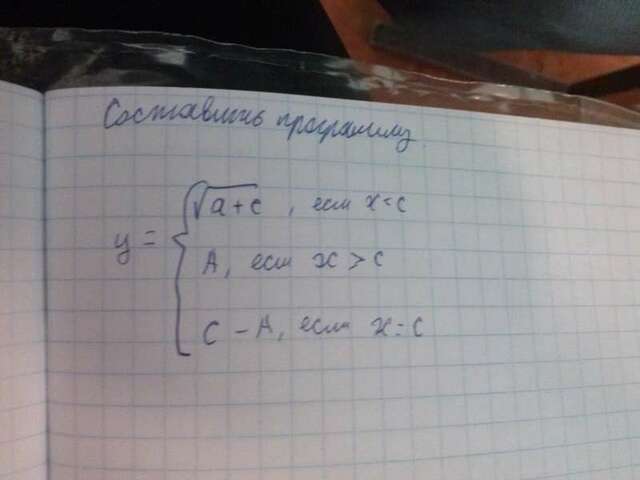 Составить программу.
y = { √a+c , если x<c
A, если x > c
C - A, если x = c